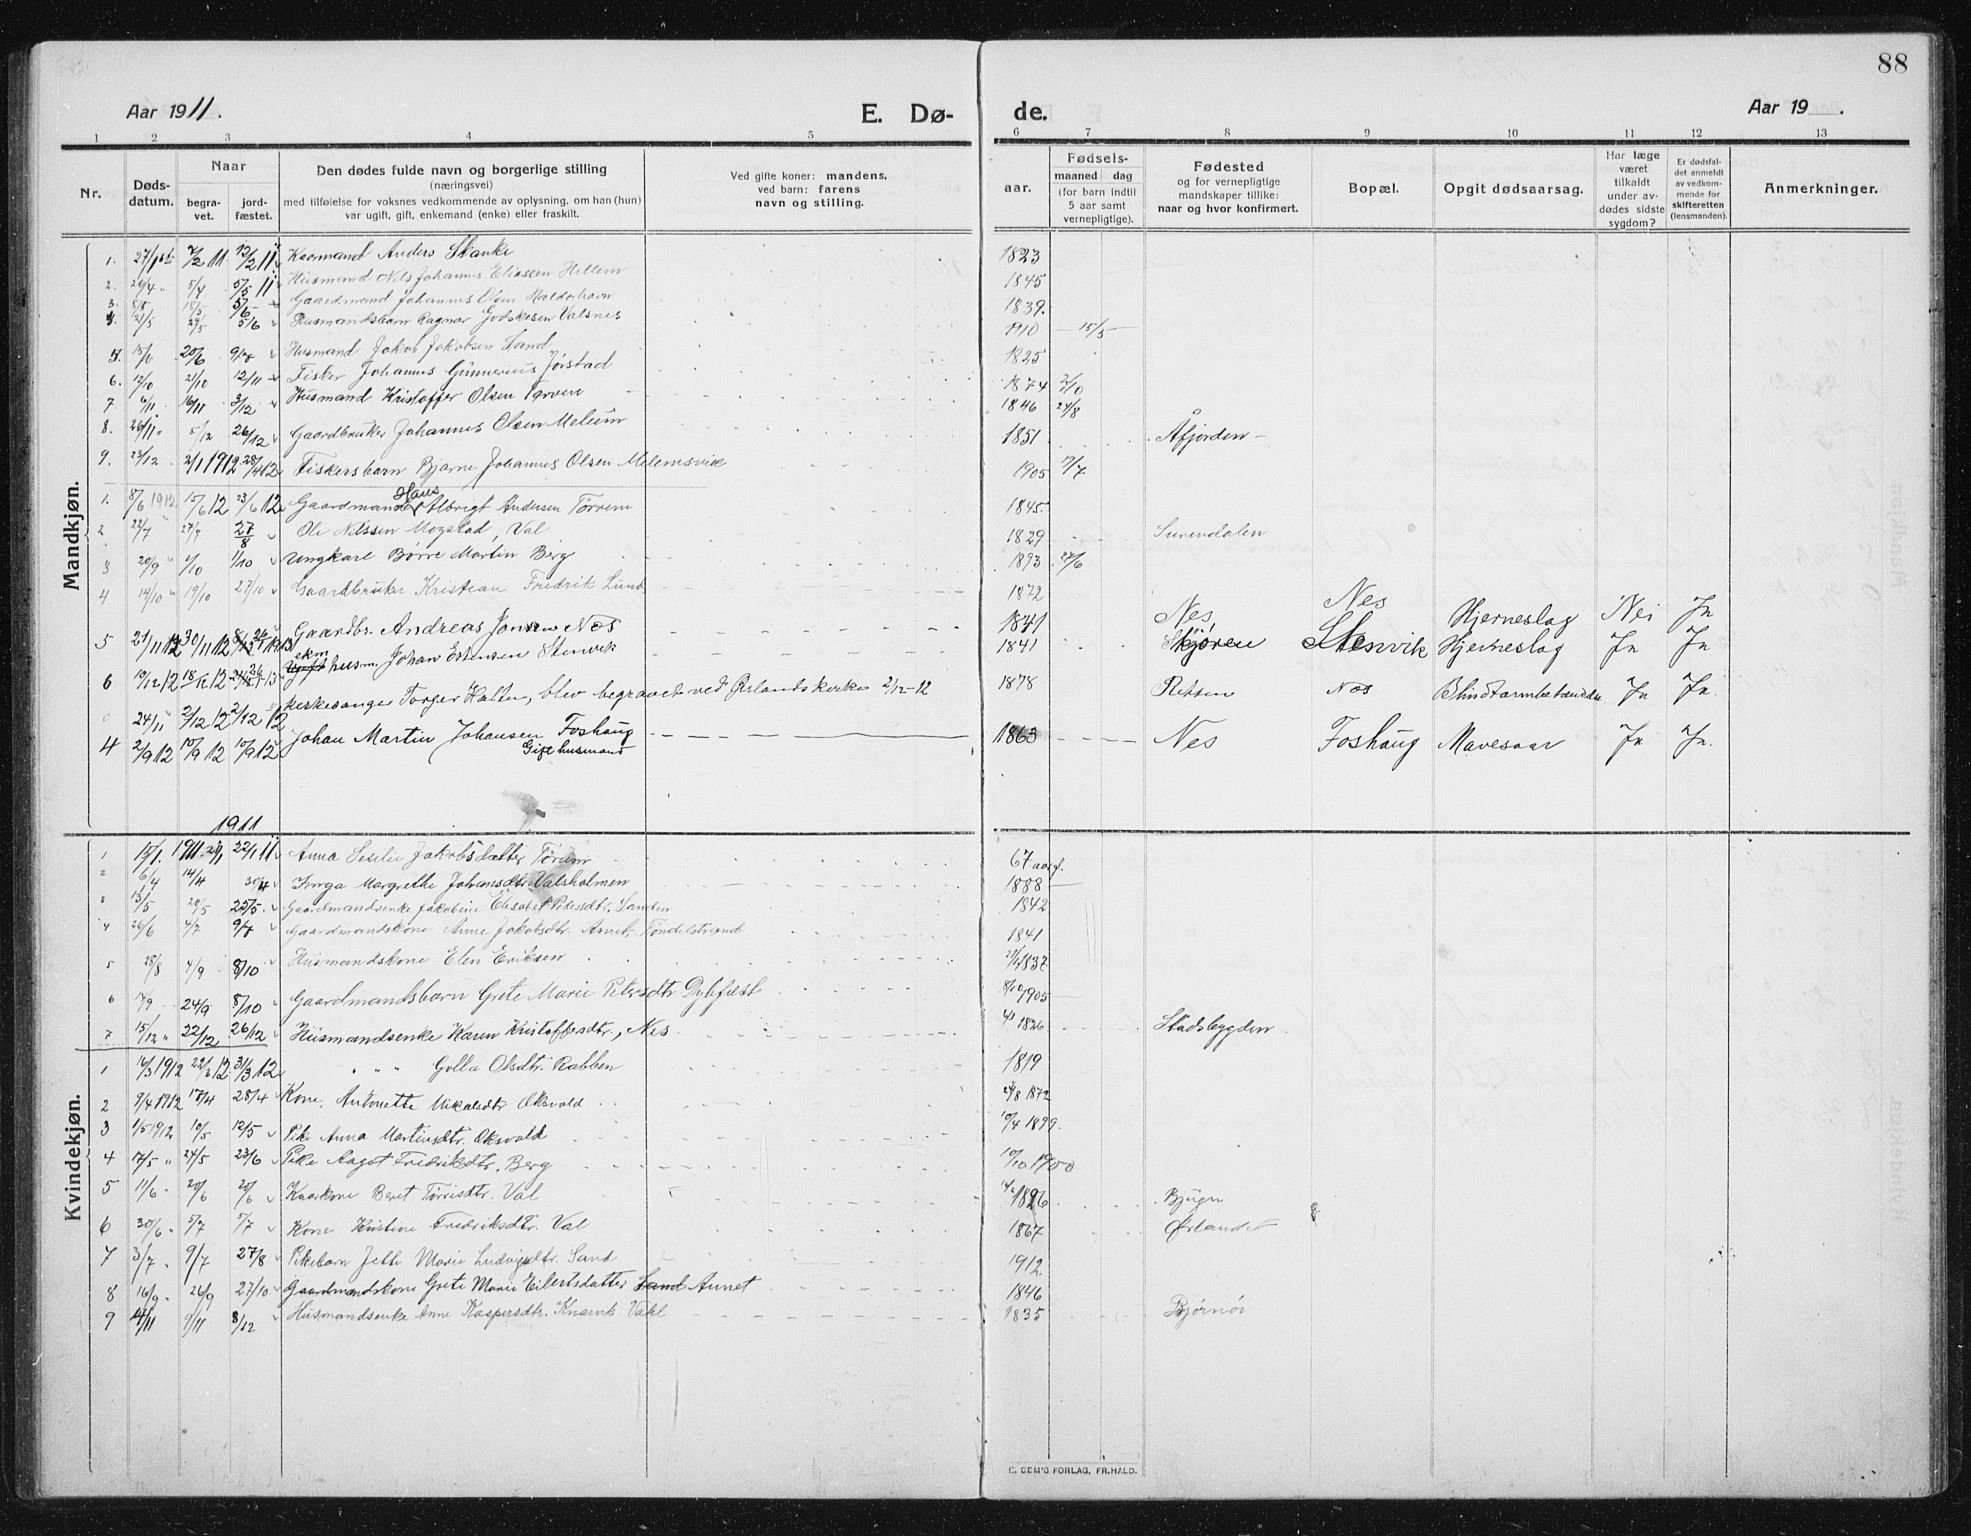 88
Aar 1911. E. Dø- de. Aar 19 .
1 2 3 4 5 6 7 8 9 10 11 12 13
Nr. Døds-datum. Naar begra-vet. jord-fæstet. Den dødes fulde navn og borgerlige stilling (næringsvei) med tilføielse for voksnes vedkommende av oplysning, om han (hun) var ugift, gift, enkemand (enke) eller fraskilt. Ved gifte koner: mandens, ved barn: farens navn og stilling. aar. Fødsels- maaned dag (for barn indtil 5 aar samt vernepligtige). Fødested og for vernepligtige mandskaper tillike: naar og hvor konfirmert. Bopæl. Opgit dødsaarsag. Har læge været tilkaldt under av-dødes sidste sygdom? Er dødsfal-det anmeldt av vedkom-mende for skifteretten (lensmanden). Anmerkninger.
Mandkjøn.
1. 7/2 11 12/2 11 Kaarmand Anders Stanke 1823
2. 26/4 5/4 5/5 11 Husmand Nils Johannes Eliassen Hellem 1845
3. 5/5 15/5 5/6 Gaardmand Johannes Olsen 1839.
4. 21/5 29/5 5/6 Husmandsbarn Ragnar Godskesen Valsnes 1910 15/5
5. 20/6 9/7 Husmand Jakob Jakobsen Sand 1825
6. 12/10 21/10 12/11 Fisker Johannes Gunnerius Jørstad 1874 2/10
7 6/11 16/11 3/12 Husmand Kristoffer Olsen Tørvem 1846 24/8
8. 26/11 5/12 26/12 Gaardbruker Johannes Olsen Melum 1851 Åfjorden
9. 23/12 2/1 1912 28/4 12 Fiskersbarn Bjarne Johannes Olsen Melemsvik 1905 17/7
1. 8/6 1912 15/6 12 23/6 12 Gaardmand Hans Albrigt Andersen Tørvem 1845
2 22/7 27/7 27/8 Ole Nilssen Mogstad, Val 1829 Surendalen
3 20/9 6/10 1/10 Ungkarl Børre Martin Berg 1893 27/6
4 14/10 19/10 27/10 Gaardbruker Kristian Fredrik Lund 1872
5 21/11 12 30/11 12 Gaardbr. Andreas Jonsen Nes 1841 Nes, Nes Hjerneslag Nei Ja
6 10/12 12 18/12 12 ekm husm. Johan Estensen Stenvik 1841 Skjøren Stenvik Hjerneslag Ja Ja
24/11 2/12 12 2/12 12 kirkesanger Torger Halten, blev begravet ved Ørlands kirke 2/12-12 1878 Rissen Nes Blindtarmbetændelse Ja Ja.
4 2/9 12 10/9 12 10/9 12 Johan Martin Johansen Foshaug 1863 Nes Foshaug Mavesaar Ja Ja.
Gift husmand
1911
Kvindekjøn.
1 15/1. 1911 22/1 11 Anna Seselie Jakobsdatter Tørum 67 aar gl.
2 6/4 14/4 30/4 Inga Margrethe Johansdtr. Valsholmen 1888
3 13/5 20/5 25/5 Gaardmandsenke Jakobine Elisabet Petersdtr. Sanden 1842
4 26/6 4/7 9/7 Gaardmandskone Anne Jakobsdtr. Arnet, Tøndelstrand 1841
5 28/8 4/9 8/10 Husmandskone Elen Eriksen 1837
6 17/9 24/9 8/10 Gaardmandsbarn Grete Marie Petersdtr Dybfest 8/10 1905
7 15/12 22/12 26/12 Husmandsenke Karen Kristoffersdtr., Nes 1826 Stadsbygden
1 14/3 1912 22/3 12 31/3 12 " " Golla Olsdtr. Rabben 1819
2 9/4 1912 17/4 28/4 Kone. Antonette Mikalsdtr Oksvold 1872
3 1/5 1912 10/5 12/5 Pike Anna Martinsdtr. Oksvold 10/4 1899.
4 17/5 " 24/5 23/6 Pike Aagot Fredriksdtr. Berg 10/10 1900
5 11/6 20/6 20/6 Kaarkone Beret Tørrisdtr. Val 1826 Bjugn
6 30/6 5/7 5/7 Kone Kristine Fredriksdtr. Val 1867 Ørlandet
7 3/7 9/7 27/8 Pikebarn Jette Marie Ludvigsdtr. Sand 1912
8 16/9 26/9 27/10 Gaardmandskone Grete Marie Eilertsdatter Sand Annet 1846
9 4/11 9/11 8/12 Husmandsenke Anne Kaspersdtr. Knarvik Vahl 1835 Bjørnør
E. SEM'S FORLAG, FR.HALD.